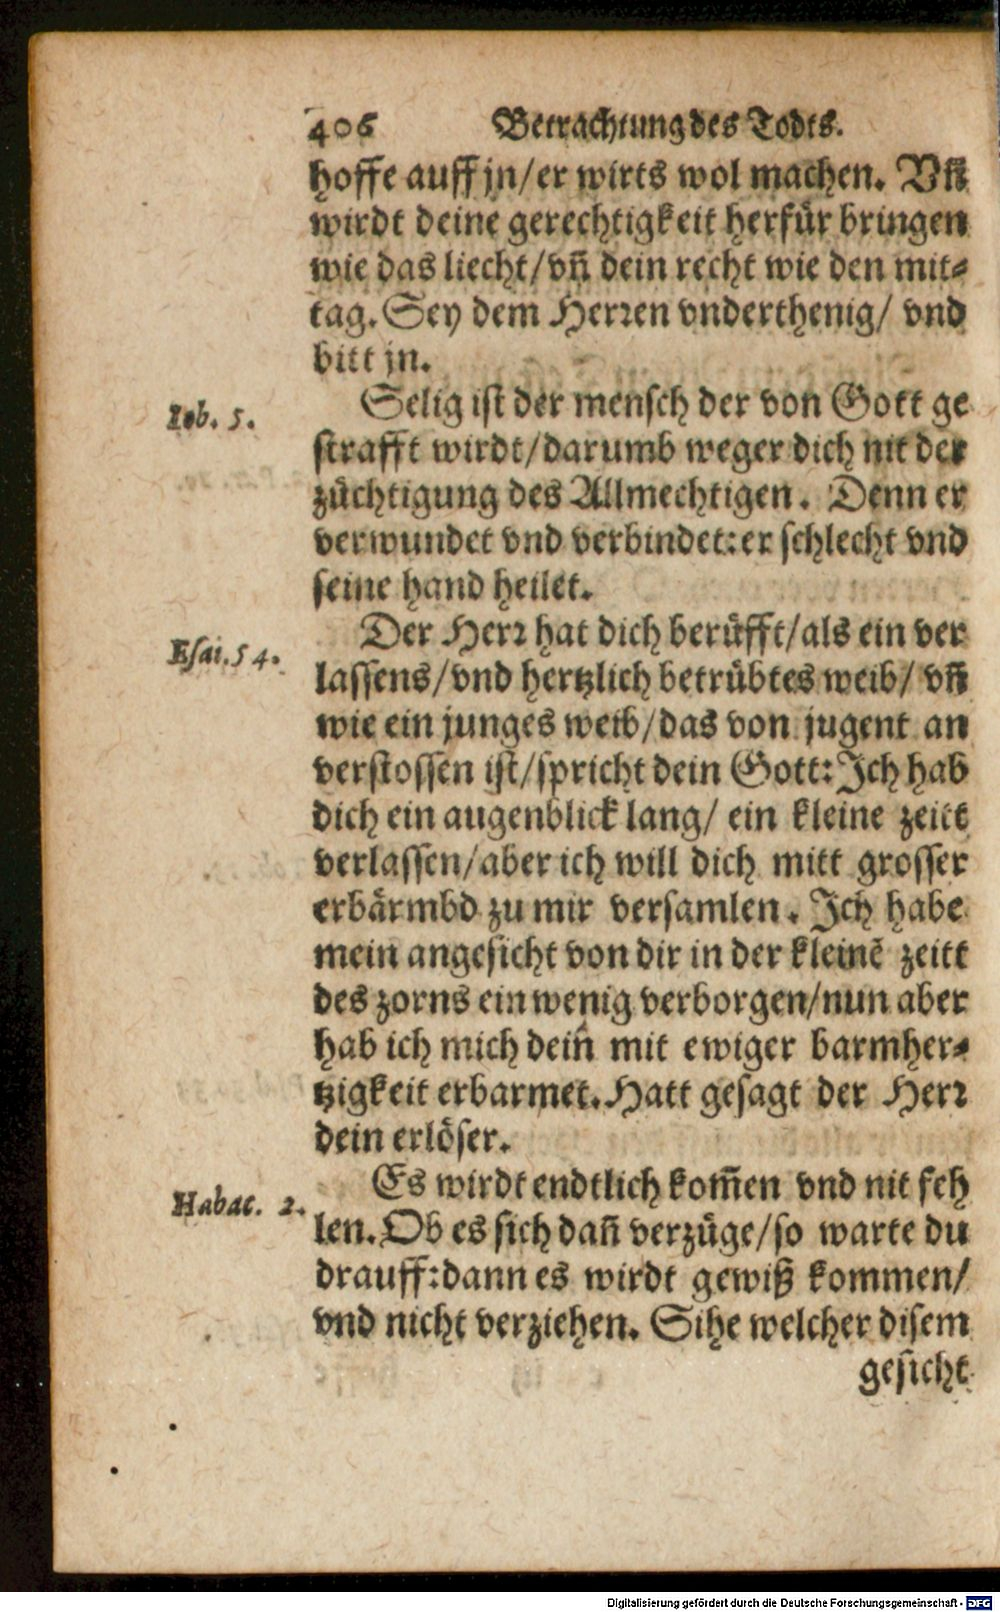 406 Betrachtung des Todts.
hoffe auff jn/er wirts wol machen. Vñ
wirdt deine gerechtigkeit herfür bringen
wie das liecht/vñ dein recht wie den mit-
tag. Sey dem Herren vnderthenig/ vnd
bitt jn.
Iob. 5.
Selig ist der mensch der von Gott ge
strafft wirdt/darumb weger dich nit der
züchtigung des Allmechtigen. Denn er
verwundet vnd verbindet:er schlecht vnd
seine hand heilet.
Esai. 54.
Der Herr hat dich berüfft/als ein ver
lassens/vnd hertzlich betrübtes weib/ vñ
wie ein junges weib/das von jugent an
verstossen ist/spricht dein Gott: Ich hab
dich ein augenblick lang/ ein kleine zeitt
verlassen/aber ich will dich mitt grosser
erbärmbd zu mir versamlen. Ich habe
mein angesicht von dir in der kleinē zeitt
des zorns ein wenig verborgen/nun aber
hab ich mich deiñ mit ewiger barmher-
tzigkeit erbarmet. Hatt gesagt der Herr
dein erlöser.
Habac. 2.
Es wirdt endtlich kom̄en vnd nit feh
len. Ob es sich dañ verzüge/so warte du
drauff:dann es wirdt gewiß kommen/
vnd nicht verziehen. Sihe welcher disem
gesicht
Digitalisierung gefördert durch die Deutsche Forschungsgemeinschaft - DFG